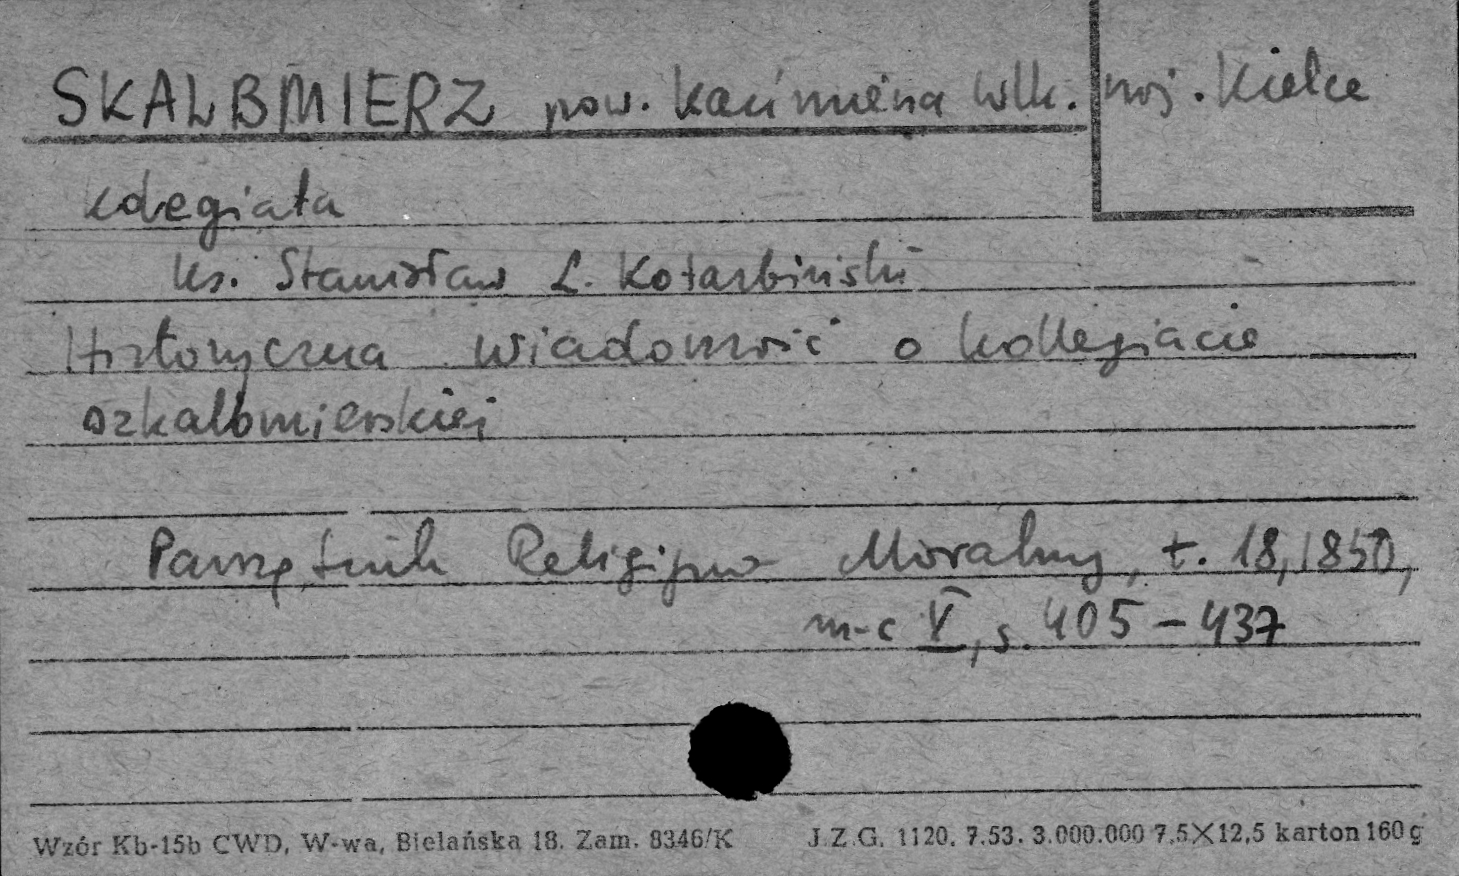 SKALBMIERZ pow. Kazimierza Wlk. woj. Kielce
kolegiata
ks. Stanisław L. Kotarbiński
Historyczna wiadomość o kollegiacie
szkalbmierskiej
Pamiętnik Religijno Moralny, t. 18, 1850,
m-c V, s. 405-437
Wzór Kb-15b CWD, W-wa, Bielańska 18. Zam. 8346/K J.Z.G. 1120. 7.53. 3.000.000 7,5X12,5 karton 160 g